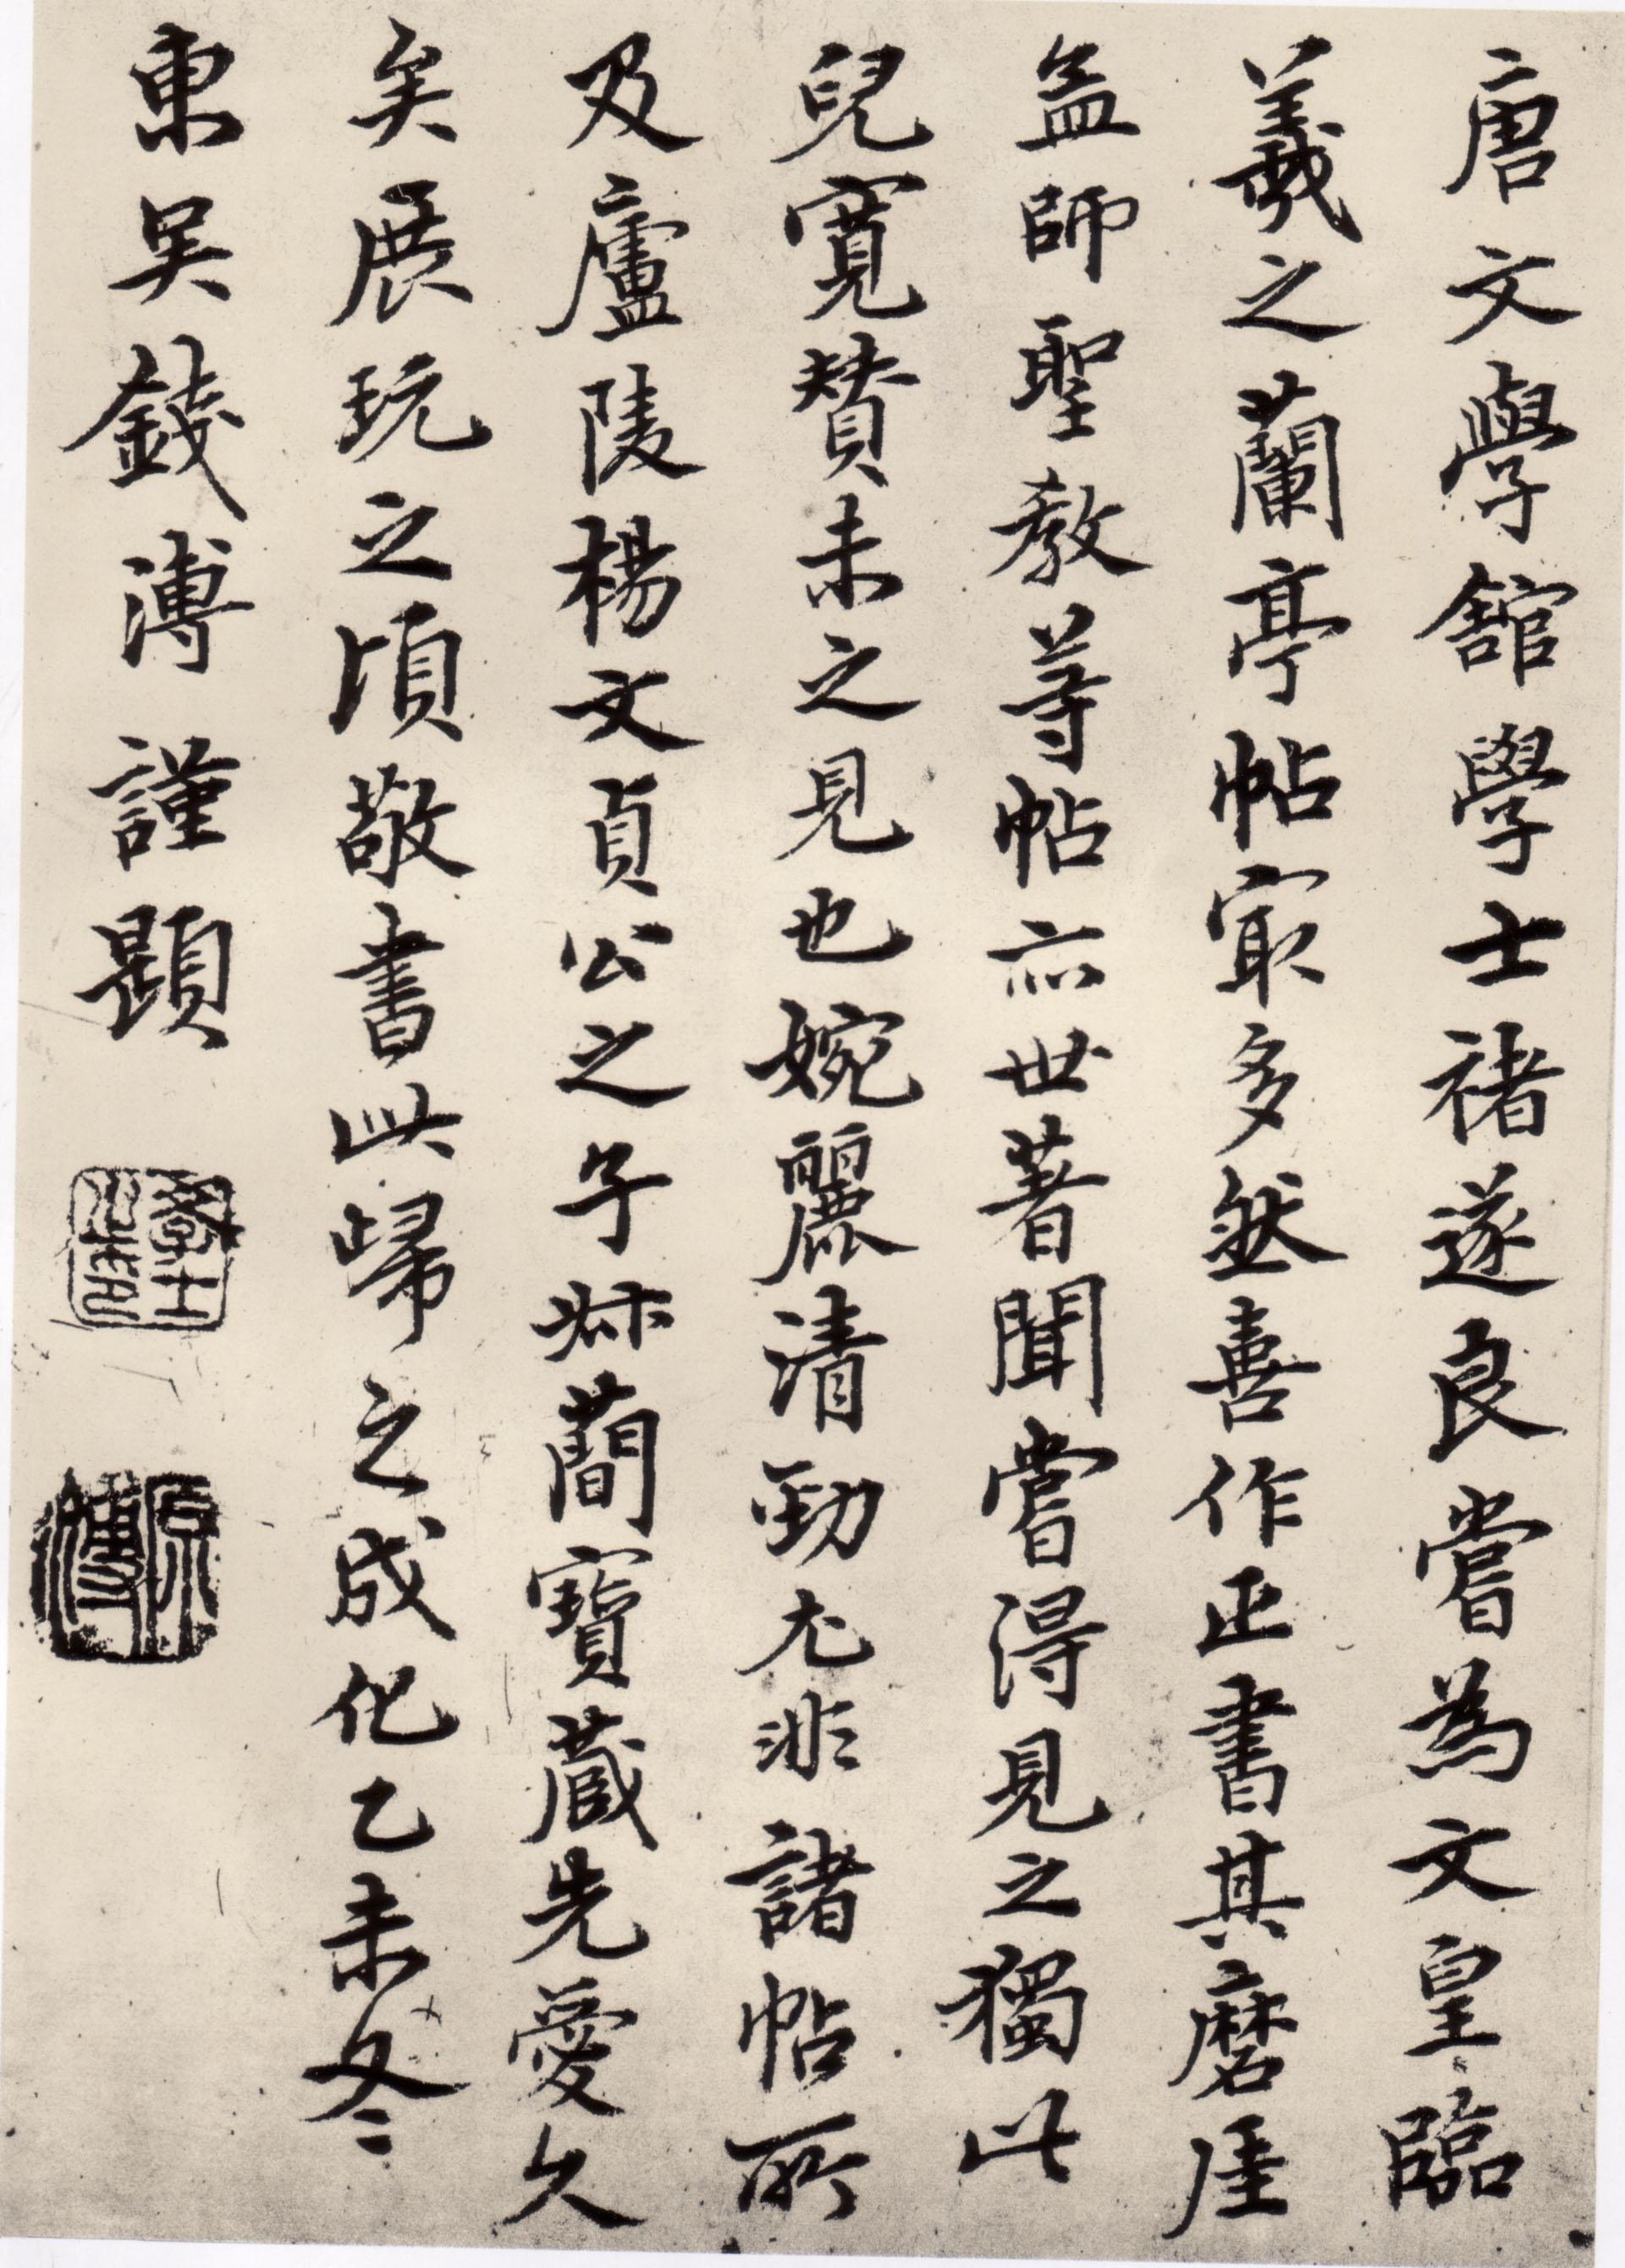 唐文學舘學士褚遂良嘗為文皇臨
羲之蘭亭帖冣多然善作正書其磨厓
孟師聖教等帖亦世著聞嘗得見之獨此
兒寬贊未之見也婉麗清勁尤非諸帖所
及廬陵楊文貞公之子叔蕳寶蔵先愛久
矣展玩之頃敬書此歸之成化乙未冬
東吳錢溥謹題
學士
之章
原溥